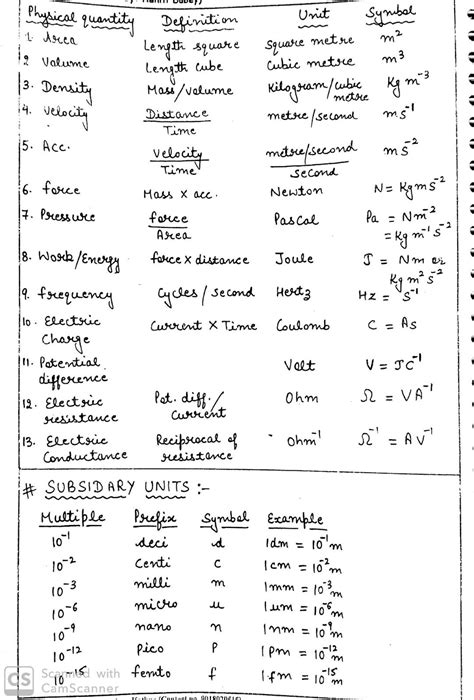 Physical quantity Definition Unit Symbol
1. Area Length square Square metre m²
2 Volume Length cube Cubic metre m³
3. Density Mass/volume Kilogram/cubic metre Kg m⁻³
4. Velocity Distance/Time metre/second ms⁻¹
5. Acc. Velocity/Time metre/second/second ms⁻²
6. force Mass x acc. Newton N = Kgms⁻²
7. Pressure force/Area Pascal Pa = Nm⁻²
= Kg m⁻¹ s⁻²
8. Work/Energy force x distance Joule J = Nm or
Kg m² s⁻²
9. frequency Cycles/second Hertz Hz = s⁻¹
10. Electric Charge Current x Time Coulomb C = As
11. Potential difference Volt V = JC⁻¹
12. Electric resistance Pot. diff./Current Ohm Ω = VA⁻¹
13. Electric Conductance Reciprocal of resistance Ohm⁻¹ Ω⁻¹ = AV⁻¹
# SUBSIDARY UNITS :-
Multiple Prefix Symbol Example
10⁻¹ deci d 1dm = 10⁻¹m
10⁻² Centi C 1cm = 10⁻²m
10⁻³ milli m 1mm = 10⁻³m
10⁻⁶ micro μ 1μm = 10⁻⁶m
10⁻⁹ nano n 1nm = 10⁻⁹m
10⁻¹² Pico P 1Pm = 10⁻¹²m
10⁻¹⁵ femto f 1fm = 10⁻¹⁵m
CS Scanned with
CamScanner